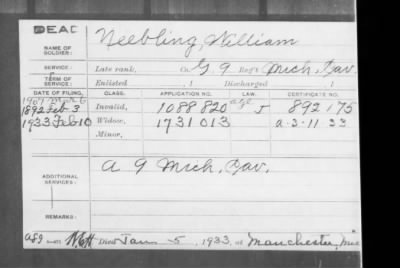 DEAD
NAME OF SOLDIER: Neebling, William
SERVICE: Late rank, Co. G, 9 Reg't Mich. Cav.
TERM OF SERVICE: Enlisted 1 Discharged 1
DATE OF FILING. CLASS. APPLICATION NO. LAW. CERTIFICATE NO.
1907
1892 Feb 3 Invalid, 1088 820 age 5 892 175
1933 Feb 10 Widow, 1731 013 a-3-11 33
Minor,
ADDITIONAL SERVICES: A 9 Mich. Cav.
REMARKS:
Died Jan 5, 1933, at Manchester, Mic